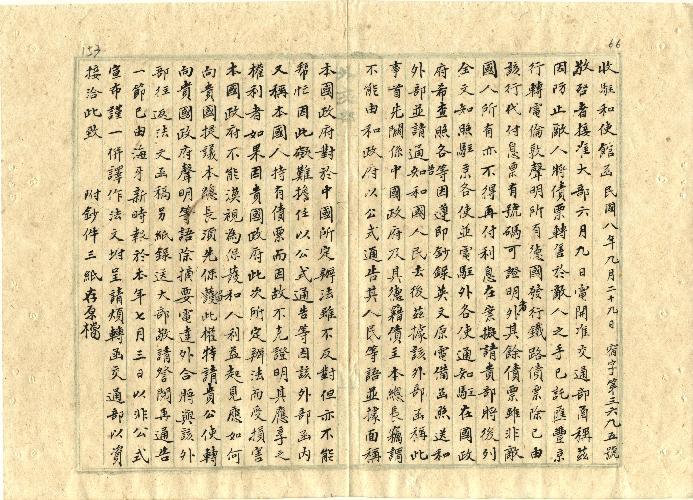 66
收駐和使館函民國八年九月二十九日 宿字第三六九五號
敬啟者接准大部六月九日電開准交通部咨稱茲
因防止敵人將債票轉售於敵人之手已託匯豐京
行轉電倫敦聲明所有德國發行鐵路債票除已由
該行代付息票有號碼可證明者外其餘債票雖非敵
國人所有亦不得再付利息在案擬請貴部將後列
全文知照駐京各使並電駐外各使通知駐在國政
府希查照各等因遵即鈔錄英文原電備函照送和
外部並請通告和國人民去後茲據該外部函稱此
事首先關係中國政府及其德籍債主本總長竊謂
不能由和政府以公式通告其人民等語並據面稱
153
本國政府對於中國所定辦法雖不反對但亦不能
幫忙因此礙難擔任以公式通告等因該外部函內
又稱本國人持有債票而因故不克證明其應享之
權利者如果因貴國政府此次所定辦法而受損害
本國政府不能漠視為保護和人利益起見應如何
向貴國提議本總長須先保留此權特請貴公使轉
向貴國政府聲明等語除摘要電達外合將與該外
部往返法文函稿另紙錄送大部敬請詧閱再通告
一節已由海牙新時報於本年七月三日以非公式
宣布謹一併譯作法文坿呈請煩轉函交通部以資
接洽此致 附鈔件三紙存原檔